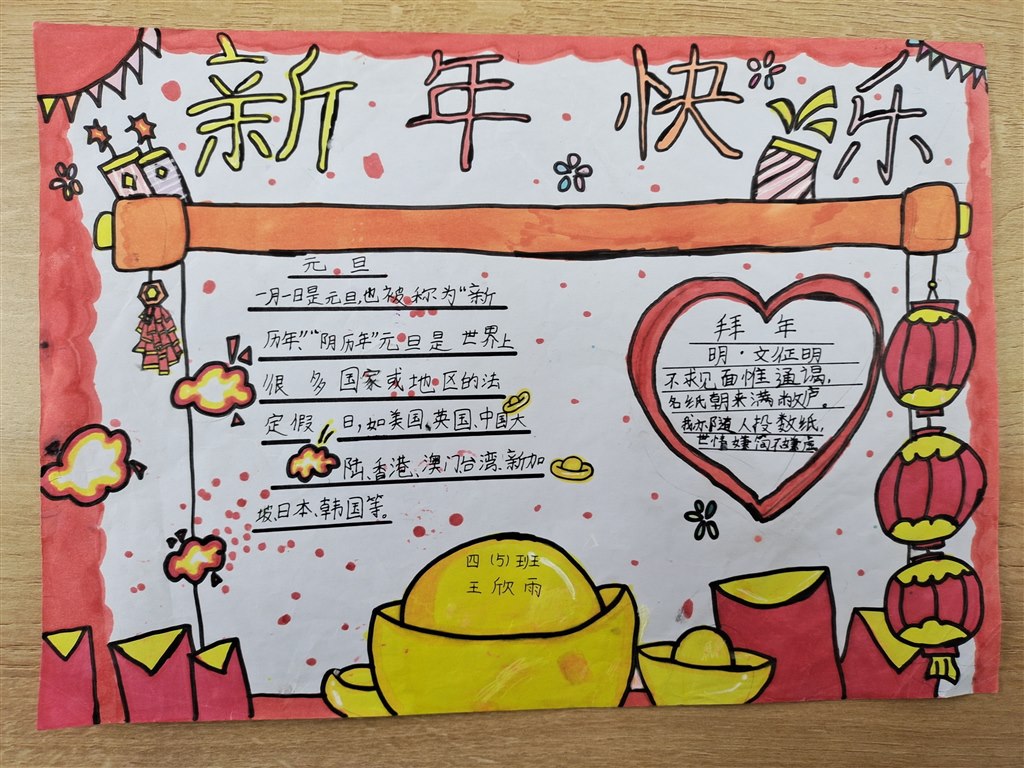 新年快乐
元旦
一月一日是元旦,也被称为“新
历年”“阴历年”元旦是世界上
很多国家或地区的法
定假日,如美国、英国、中国大
陆、香港、澳门台湾、新加
坡、日本、韩国等。
拜年
明·文征明
不求见面惟通谒,
名纸朝来满敝庐。
我亦随人投数纸,
世情嫌简不嫌虚
四(5)班
王欣雨